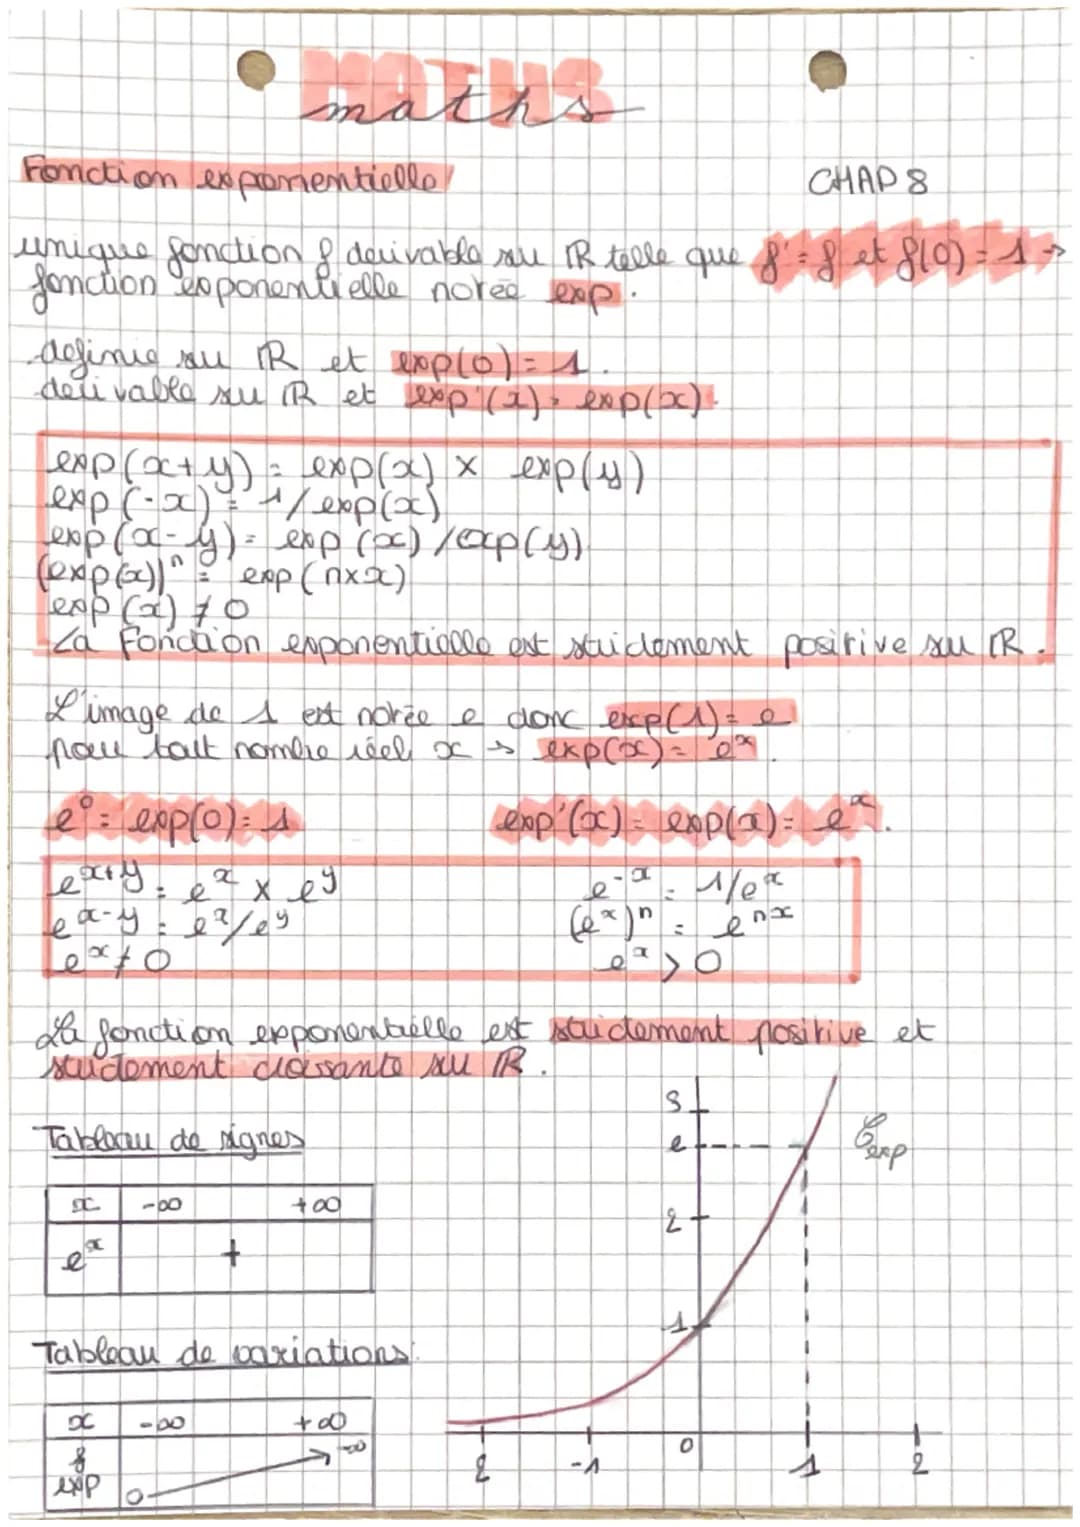 MATHS
maths
Fonction exponentielle
CHAP 8
unique fonction f derivable su ℝ telle que f' = f et f(0) = 1 →
fonction exponentielle notée exp.
definie su ℝ et exp(0) = 1.
derivable su ℝ et exp'(x) = exp(x).
exp(x+y) = exp(x) × exp(y)
exp(-x) = 1/exp(x)
exp(x-y) = exp(x)/exp(y)
(exp(x))ⁿ = exp(n×x)
exp(x) ≠ 0
La Fonction exponentielle est strictement positive su ℝ.
L'image de 1 est notée e donc exp(1) = e
pour tout nombre réel x → exp(x) = eˣ.
e⁰ = exp(0) = 1
exp'(x) = exp(x) = eˣ.
eˣ⁺ʸ = eˣ × eʸ
e⁻ˣ = 1/eˣ
eˣ⁻ʸ = eˣ/eʸ
(eˣ)ⁿ = eⁿˣ
eˣ ≠ 0
eˣ > 0
La fonction exponentielle est strictement positive et
strictement croissante su ℝ.
Tableau de signes
x -∞ +∞
eˣ +
Tableau de variations:
x -∞ +∞
f
exp 0 → +∞
3
e
2
1
𝒞exp
2 -1 0 1 2